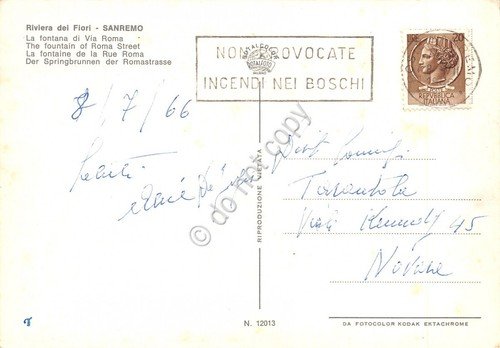 Riviera dei Fiori - SANREMO
La fontana di Via Roma
The fountain of Roma Street
La fontaine de la Rue Roma
Der Springbrunnen der Romastrasse
NON PROVOCATE
INCENDI NEI BOSCHI
REPUBBLICA
ITALIANA
8/7/66
Tarantola
Viale Kennedy 45
Novara
RIPRODUZIONE VIETATA
© do not copy
N. 12013
DA FOTOCOLOR KODAK EKTACHROME